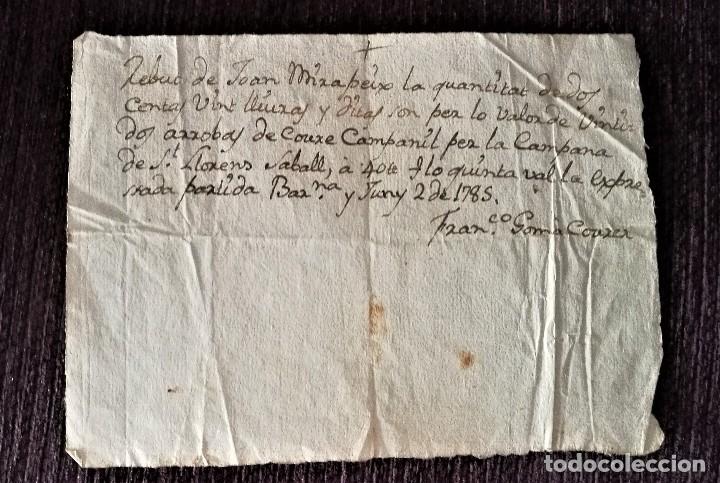 Rebut de Joan Mirapeix la quantitat de dos
Centas Vint lliuras y ditas son per lo valor de Vinti
dos arrobas de Coure Campanil per la Campana
de S.t Llorens Saball, à 40 lo quinta val la expre
sada partida Bar.na y Juny 2 de 1785.
Fran.co Gomà Courer
todocoleccion.net